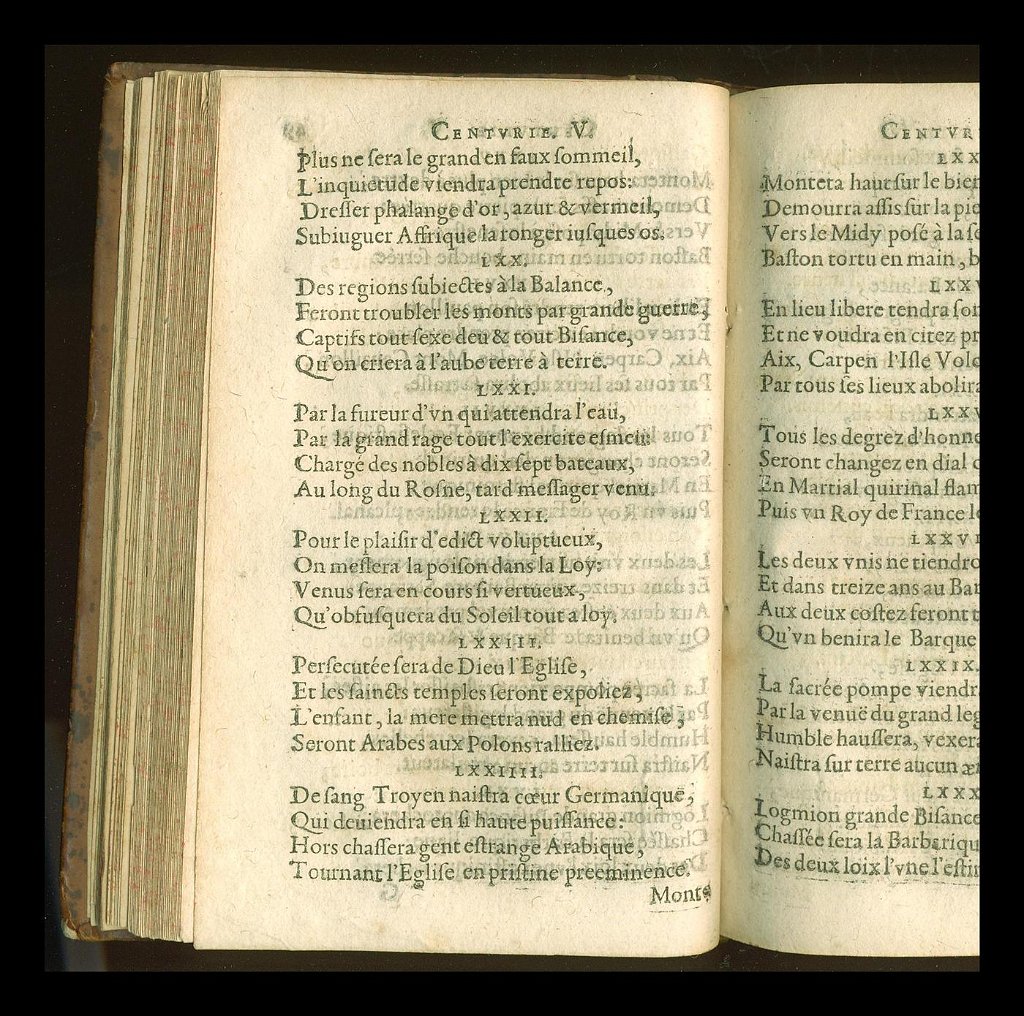 CENTVRIE. V.
Plus ne ſera le grand en faux ſommeil,
L'inquietude viendra prendre repos:
Dreſſer phalange d'or, azur & vermeil,
Subiuguer Affrique la ronger iuſques os.
LXX.
Des regions ſubiectes à la Balance,
Feront troubler les monts par grande guerre,
Captifs tout ſexe deu & tout Biſance,
Qu'on criera à l'aube terre à terre.
LXXI.
Par la fureur d'vn qui attendra l'eau,
Par la grand rage tout l'exercite eſmeu:
Chargé des nobles à dix ſept bateaux,
Au long du Roſne, tard meſſager venu.
LXXII.
Pour le plaiſir d'edict voluptueux,
On meſlera la poiſon dans la Loy:
Venus ſera en cours ſi vertueux,
Qu'obfuſquera du Soleil tout a loy.
LXXIII.
Perſecutée ſera de Dieu l'Egliſe,
Et les ſaincts temples ſeront expoliez,
L'enfant, la mere mettra nud en chemiſe,
Seront Arabes aux Polons ralliez.
LXXIIII.
De ſang Troyen naiſtra cœur Germanique,
Qui deuiendra en ſi haute puiſſance:
Hors chaſſera gent eſtrange Arabique,
Tournant l'Egliſe en priſtine preeminence.
Monte
CENTVR
LXX
Montera haut ſur le bien
Demourra aſſis ſur la pie
Vers le Midy poſé à la ſe
Baſton tortu en main, b
LXXV
En lieu libere tendra ſon
Et ne voudra en citez pr
Aix, Carpen l'Iſle Volc
Par tous ſes lieux abolira
LXXV
Tous les degrez d'honne
Seront changez en dial c
En Martial quirinal flam
Puis vn Roy de France le
LXXVI
Les deux vnis ne tiendro
Et dans treize ans au Bar
Aux deux coſtez feront t
Qu'vn benira le Barque
LXXIX.
La ſacrée pompe viendra
Par la venuë du grand leg
Humble hauſſera, vexera
Naiſtra ſur terre aucun æm
LXXX
Logmion grande Biſance
Chaſſée ſera la Barbariqu
Des deux loix l'vne l'eſtin